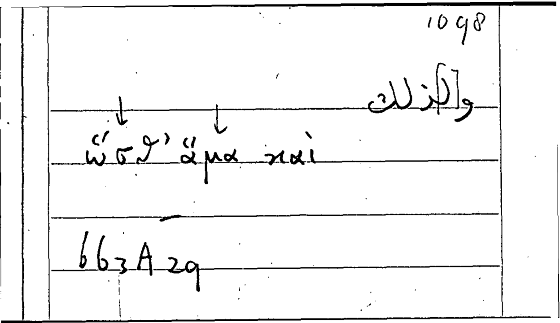 1098
و[ا]لذلك
ὥσθ’ ἅμα καὶ
663A29